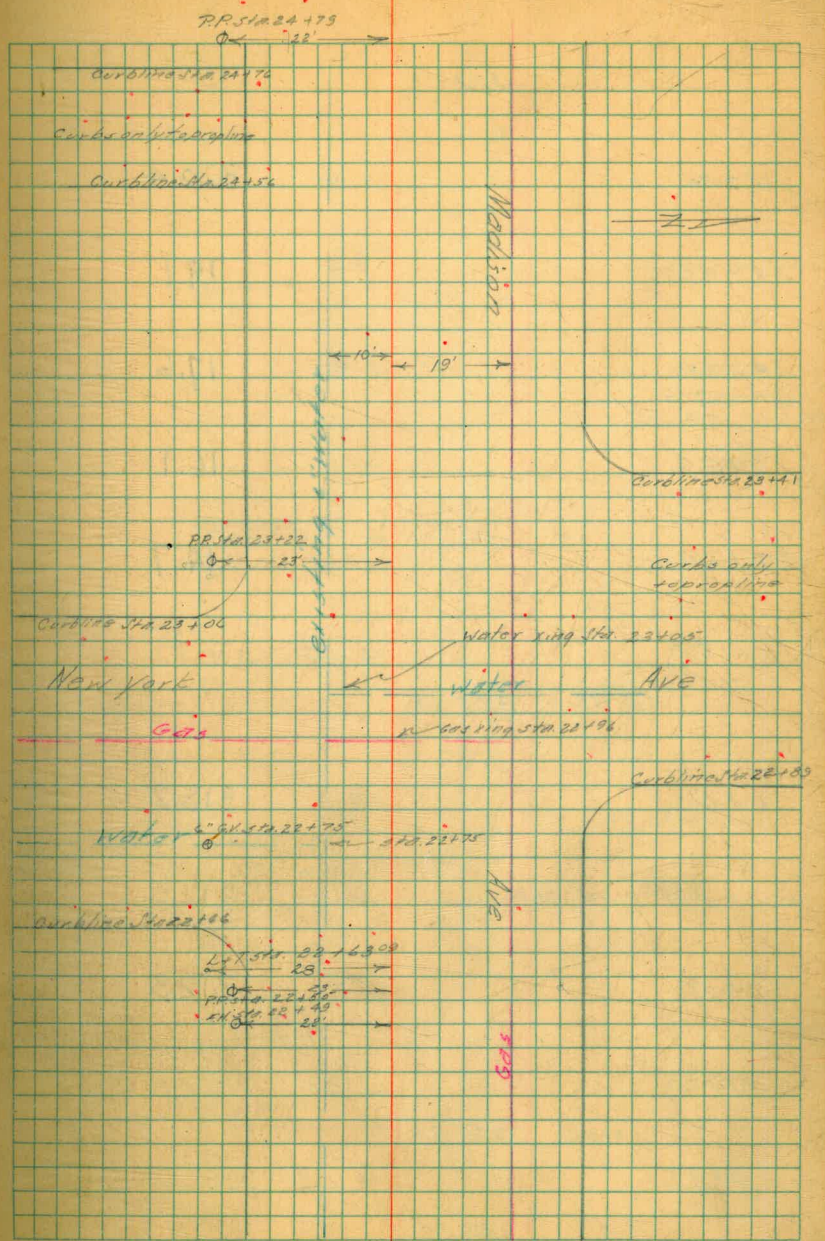 P.P. Sta. 24+79
22'
Curbline Sta. 24+76
Curbs only to propline
Curbline Sta. 24+56
Madison
10'
19'
existing water
Curbline Sta. 23+41
P.P. Sta. 23+22
23'
Curbs only
to propline
Curbline Sta. 23+06
Water xing Sta. 23+05
New York
Water
Ave
Gas
Gas xing Sta. 22+96
Curbline Sta 22+89
Water
6" G.V. Sta. 22+75
Sta. 22+75
Ave
Curbline Sta 22+66
Sta. 22+63.09
28
23
P.P. Sta. 22+
F.H. Sta. 22+49
22'
Gas